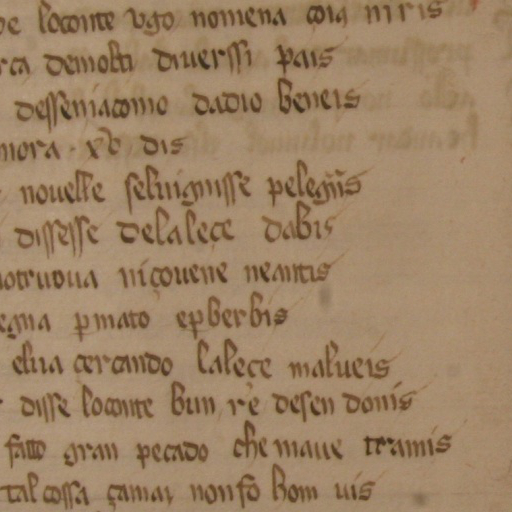 loconte vgo nomena coia miris
rca demolti diuerssi pais
desseniacomo dadio beneis
mora · xv dis
nouelle seluignisse pelegris
dissesse delaleçe dabis
notruoua niçouene neantis
egna ꝑmato eꝑberbis
elua çercando laleçe malueis
disse loconte bun re desen donis
fatto gran pecado che maue tramis
tal cossa çamai non fo hom uis